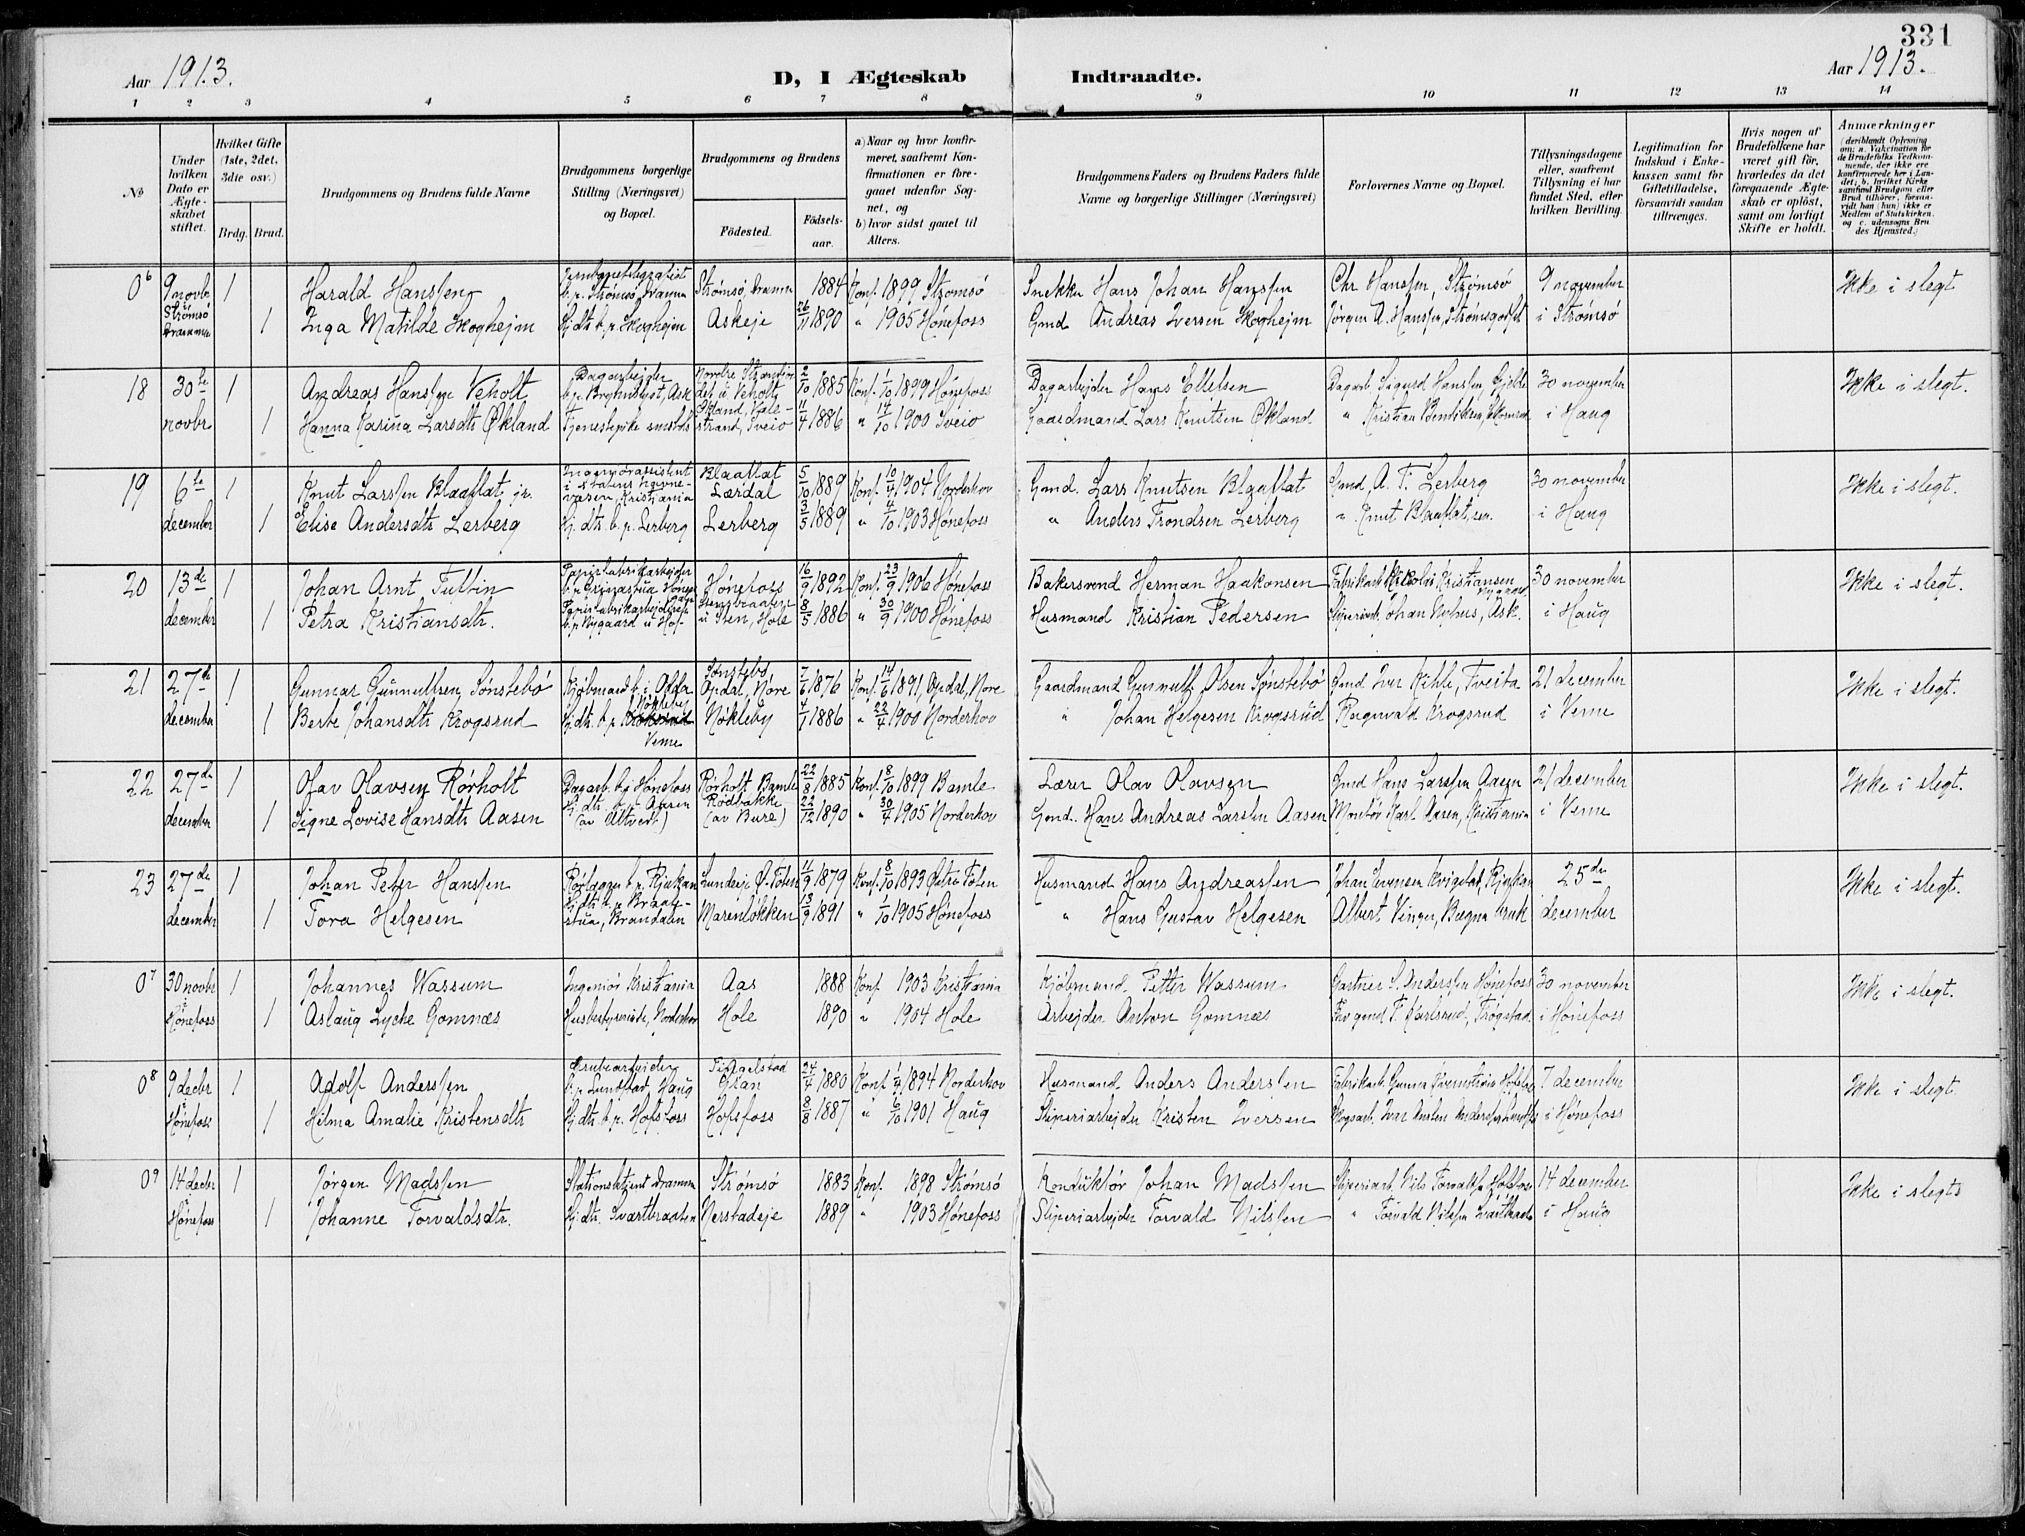 331
Aar 1913. D, I Ægteskab Indtraadte. Aar 1913.
1 2 3 4 5 6 7 8 9 10 11 12 13 14
№ Under hvilken Dato er Ægteskabet stiftet. Hvilket Gifte (1ste, 2det, 3die osv.) Brdg. Brud. Brudgommens og Brudens fulde Navne Brudgommens borgerlige Stilling (Næringsvei) og Bopæl. Brudgommens og Brudens Födested. Födsels-aar. a) Naar og hvor konfirmeret, saafremt Konfirmationen er foregaaet udenfor Sognet, og b) hvor sidst gaaet til Alters. Brudgommens Faders og Brudens Faders fulde Navne og borgerlige Stillinger (Næringsvei) Forlovernes Navne og Bopæl. Tillysningsdagene eller, saafremt Tillysning ei har fundet Sted, efter hvilken Bevilling. Legitimation for Indskud i Enkekassen samt for Giftetilladelse, forsaavidt saadan tiltrænges. Hvis nogen af Brudefolkene har været gift för, hvorledes da det foregaaende Ægteskab er oplöst, samt om lovligt Skifte er holdt. Anmærkninger
06 9 novbr 1 Harald Hanssen b.p. Strømsø, Dramm Strømsø, Dramm 1884 Konf. 1899 Strømsø Snekker Hans Johan Hanssen Chr Hanssen, Strømsø 9 november Ikke i slegt
i Strømsø Drammen 1 Inga Matilde Skoghejm Hj. dtr b.p. Skoghejm Askeje 26/11 1890 " 1905 Hønefoss Gmd Andreas Iversen Skoghejm Jørgen A. Hanssen, Strømsgodset i Strømsø
18 30te 1 Andreas Hanssen Veholt Dagarbejder 2/10 1885 Konf. 1/10 1899 Hønefoss Dagarbejder Hans Ellefsen Dagarb. Sigurd Hanssen 30 november Ikke i slegt.
novbr 1 Hanna Karina Larsdtr Økland Tjenestepike Økland, Valestrand, Sveio 11/4 1886 " 14/10 1900 Sveio Gaardmand Lars Knutsen Økland " Kristian Bendiksen i Haug
19 6te 1 Knut Larssen Blaaflat, jr. Ingeniørassistent i Statens havnevæsen, Kristiania Blaaflat Lærdal 5/10 1889 Konf. 10/4 1904 Norderhov Gmd. Lars Knutsen Blaaflat Gmd. A. T. Lerberg 30 november Ikke i slegt.
december 1 Elise Andersdtr Lerberg Hj. dtr. b.p. Lerberg Lerberg 3/5 1889 " 4/10 1903 Hønefoss " Anders Trondsen Lerberg " Knut Blaaflat, sen. i Haug
20 13de 1 Johan Arnt Tuttin Papirfabrikarbejder Hønefoss 16/9 1892 Konf. 23/9 1906 Hønefoss Bakersvend Herman Haakonsen Fabrikarb. Nikolai Kristiansen 30 november Ikke i slegt.
december 1 Petra Kristiansdtr. b.p. Nygaard u Hof- u Sten, Hole 8/5 1886 " 30/9 1900 Hønefoss Husmand Kristian Pedersen Sliperiarb. Johan Nyhus, Ask. i Haug
21 27de 1 Gunnar Gunnulfsen Sønstebø Kjøbmand b. i Odda Sønstebø Opdal, Nore 7/6 1876 Konf. 14/6 1891, Opdal, Nore Gaardmand Gunnulf Olsen Sønstebø Gmd Iver Kihle, Tveita 21 december Ikke i slegt.
december 1 Berte Johansdtr Krogsrud Hj. dtr. b.p. Nökleby Veme Nökleby 4/1 1886 " 22/4 1900 Norderhov " Johan Helgesen Krogsrud Ragnvald Krogsrud i Veme
22 27de 1 Olav Olavsen Rørholt Dagarb. b.p Hönefoss Rørholt Bamle 22/8 1885 Konf. 8/10 1899 Bamle Lærer Olav Olavsen Gmd Hans Larssen Aasen 21 december Ikke i slegt.
december 1 Signe Lovise Hansdtr Aasen Hj. dtr. b.p. Aasen Rödbakke (av Bure) 22/12 1890 " 30/4 1905 Norderhov Gmd. Hans Andreas Larssen Aasen Montör Karl Aasen, Kristiania i Veme
23 27de 1 Johan Peter Hanssen Rörlægger b.p. Rjukan Ø. Toten 11/9 1879 Konf. 8/10 1893 Østre Toten Husmand Hans Andreassen Johan Kvigstad, Rjukan 25de Ikke i slegt.
december 1 Tora Helgesen Hj. dtr. b.p. Braatestua, Brandalen Marenløkken 13/9 1891 " 1/10 1905 Hønefoss " Hans Gustav Helgesen Albert Vinger, Bægna bruk december
07 30 novbr 1 Johannes Wassum Ingeniör Kristiania Aas 1888 Konf 1903 Kristiania Kjöbmand Petter Wassum Gartner S. Anderssen Hönefoss 30 november Ikke i slegt.
i Hønefoss 1 Aslaug Lycke Gomnæs Husbestyrerinde, Norderhov Hole 1890 " 1904 Hole Arbejder Anton Gomnæs T. Karlsrud, Trøgstad i Hönefoss
08 9 decbr 1 Adolf Anderssen Grubearbejder b.p. Lundstad, Haug Tingelstad Gran 24/4 1880 Konf. 1894 Norderhov Husmand Anders Anderssen 7 december Ikke i slegt
i Hönefoss 1 Hilma Amalie Kristensdtr Hj. dtr. b.p. Hofsfoss Hofsfoss 8/8 1887 " 6/10 1901 Haug Sliperiarbejder Kristen Iversen i Hönefoss
09 14 decbr 1 Jørgen Madssen Stationsbetjent Drammen Strømsø 1883 Konf. 1898 Strømsø Konduktör Johan Madssen Sliperiarb. Nils Torvaldsen Hofsfoss 14 december Ikke i slegt
i Hønefoss 1 Johanne Torvaldsdtr. Hj. dtr. Svartbraaten Nerstadeje 1889 " 1903 Hønefoss Sliperiarbejder Torvald Nilssen " Torvald Nilssen Svartbraaten i Haug